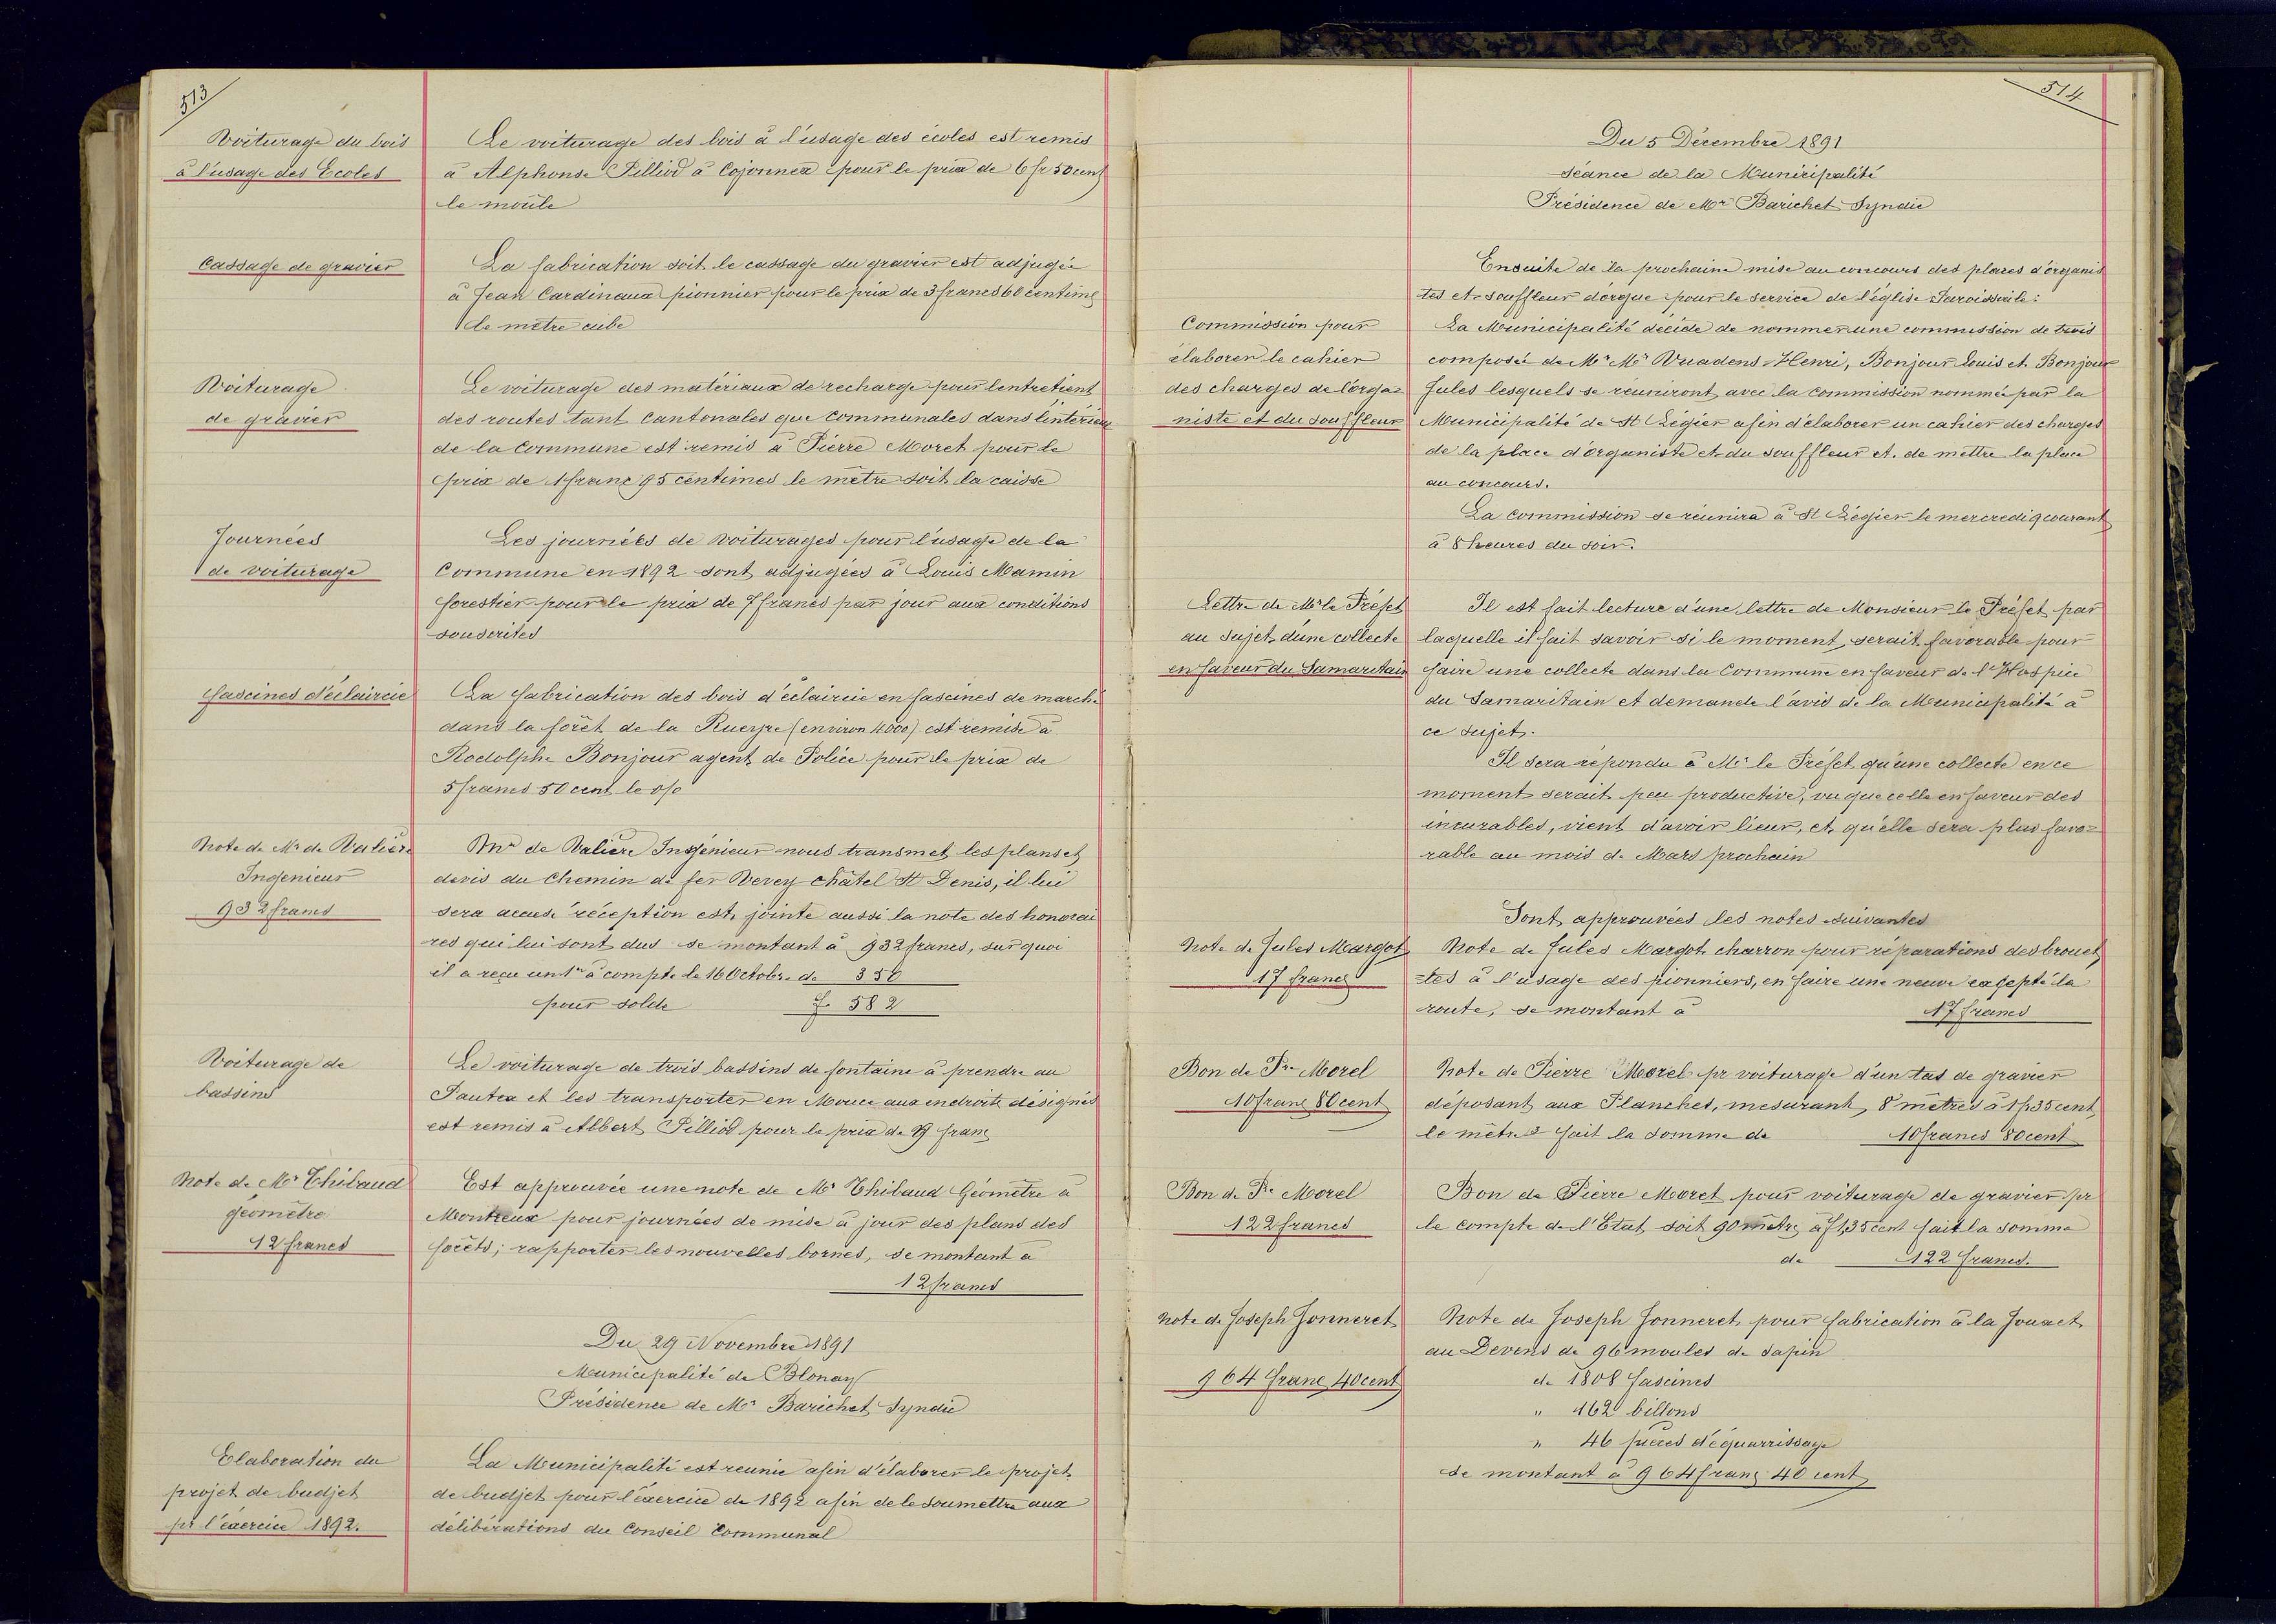 513
Voiturage du bois
à l'usage des Ecoles
Le voiturage des bois à l'usage des écoles est remis
à Alphonse Pilliod à Cojonnex pour le prix de 6 fr 50 cent
le moule
Cassage de gravier
La fabrication soit le cassage du gravier est adjugée
à Jean Cardinaux pionnier pour le prix de 3 francs 60 centimes
le mètre cube
Voiturage
de gravier
Le voiturage des matériaux de recharge pour l'entretient
des routes tant Cantonales que Communales dans l'intérieur
de la Commune est remis à Pierre Moret pour le
prix de 1 franc 95 centimes le mètre soit la caisse
Journées
de voiturage
Les journées de voiturages pour l'usage de la
Commune en 1892 sont adjugées à Louis Mamin
forestier pour le prix de 7 francs par jour aux conditions
souscrites
fascines d'éclaircie
La fabrication des bois d'éclaircie en fascines de marché
dans la forêt de la Rueyre (environ 4000) est remise à
Rodolphe Bonjour agent de Police pour le prix de
5 francs 50 cent le %
Note de Mr de Valière
Ingenieur
932 francs
Mr de Valière Ingénieur nous transmet les plans et
devis du Chemin de fer Vevey châtel St Denis, il lui
sera accusé réception est jointe aussi la note des honorai
res qui lui sont dus se montant à 932 francs, sur quoi
il a reçu un 1er à compte le 16 Octobre de 350
pour solde f. 582
Voiturage de
bassins
Le voiturage de trois bassins de fontaine à prendre au
Pautex et les transporter en Mouce aux endroits désignés
est remis à Albert Pilliod pour le prix de 19 franc
Note de Mr Thibaud
géomètre
12 francs
Est approuvée une note de Mr Thibaud Géomètre à
Montreux pour journées de mise à jour des plans des
forêts; rapporter les nouvelles bornes, se montant à
12 francs
Du 29 Novembre 1891
Municipalité de Blonay
Présidence de Mr Barichet Syndic
Elaboration du
projet de budjet
pr l'éxercice 1892.
La Municipalité est reunie afin d'élaborer le projet
de budjet pour l'éxercice de 1892 afin de le soumettre aux
délibérations du Conseil Communal
514
Du 5 Décembre 1891
Séance de la Municipalité
Présidence de Mr Barichet Syndic
Ensuite de la prochaine mise au concours des places d'organis
tes et souffleur d'orgue pour le service de l'église Paroissiale:
Commission pour
élaborer le cahier
des charges de l'orga=
niste et du souffleur
La Municipalité décide de nommer une commission de trois
composée de Mr Mr Vuadens Henri, Bonjour Louis et Bonjour
Jules lesquels se réuniront avec la commission nommée par la
Municipalité de St Légier afin d'élaborer un cahier des charges
de la place d'organiste et du souffleur et de mettre la place
au concours.
La Commission se réunira à St Légier le mercredi 9 courant
à 8 heures du soir.
Lettre de Mr le Préfet
au sujet d'une collecte
en faveur du Samaritain
Il est fait lecture d'une lettre de Monsieur le Préfet par
laquelle il fait savoir si le moment serait favorable pour
faire une collecte dans la Commune en faveur de l'Hospice
du Samaritain et demande l'avis de la Municipalité à
ce sujet.
Il sera répondu à Mr le Préfet qu'une collecte en ce
moment serait peu productive, vu que celle en faveur des
incurables, vient d'avoir lieur, et qu'elle sera plus favo=
rable au mois de Mars prochain
Sont approuvées les notes suivantes
Note de Jules Margot
17 francs
Note de Jules Margot charron pour réparations des brouet
=tes à l'usage des pionniers, en faire une neuve excepté la
route, se montant à 17 francs
Bon de Pre Morel
10 franc 80 cent
Note de Pierre Morel pr voiturage d'un tas de gravier
déposant aux Planches, mesurant 8 mètres à 1 fr 35 cent
le mètre fait la somme de 10 francs 80 cent
Bon de Pre Morel
122 francs
Bon de Pierre Moret pour voiturage de gravier pr
le compte de l'Etat soit 90 mètre à f 1,35 cent fait la somme
de 122 francs.
Note de Joseph Jonneret
964 franc 40 cent
Note de Joseph Jonneret pour fabrication à la Jouxet
au Devens de 96 moules de sapin
de 1808 fascines
" 162 billons
" 46 pieces d'équarrissage
se montant à 964 franc 40 cent